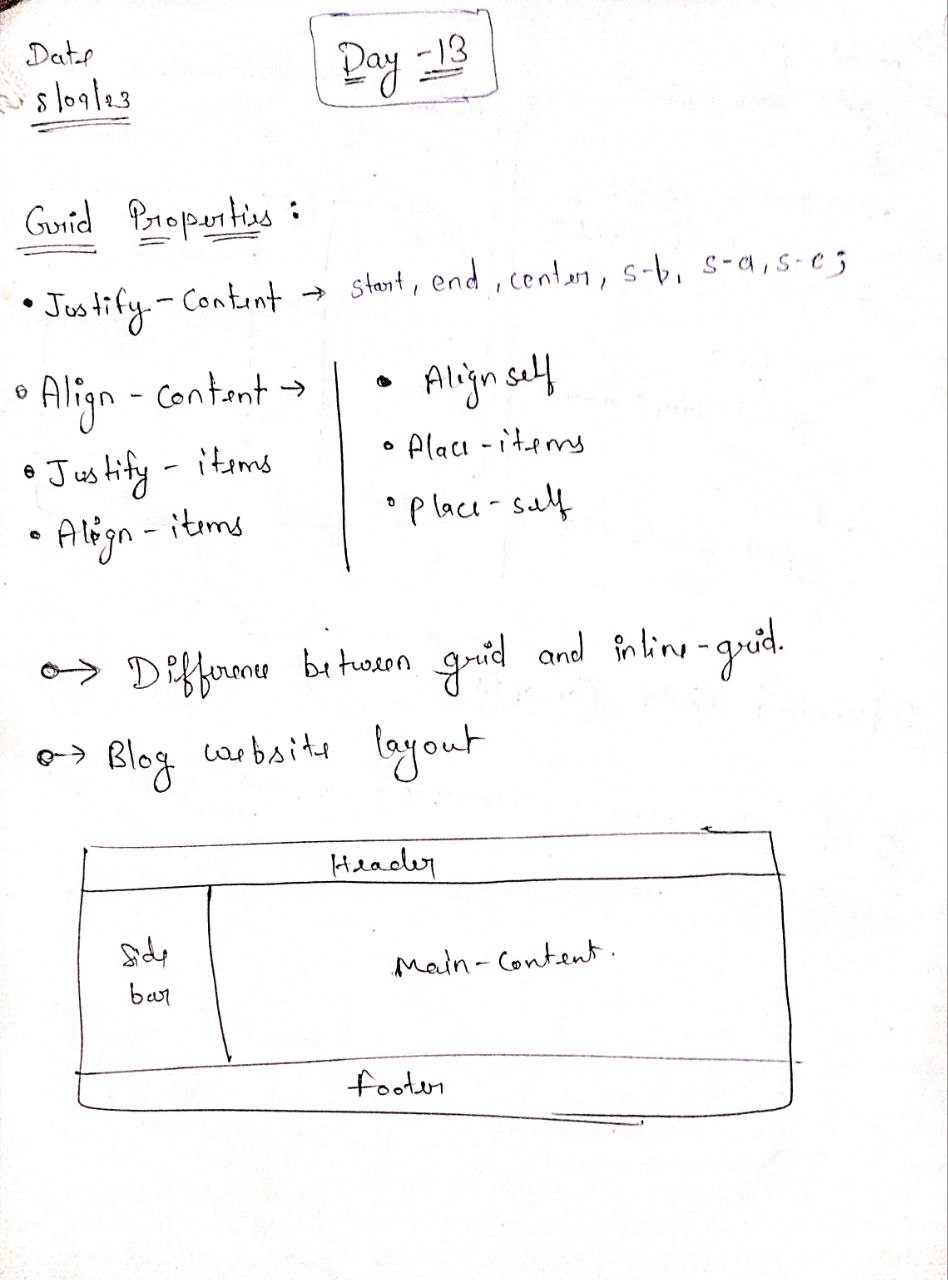 Date
Day - 13
8/09/23
Grid Properties :
• Justify - Content → start, end, center, s-b, s-a, s-e;
• Align - content →
• Justify - items
• Align - items
• Align self
• Place - items
• place - self
→ Difference between grid and inline-grid.
→ Blog website layout
Header
Side
bar
Main-Content.
footer